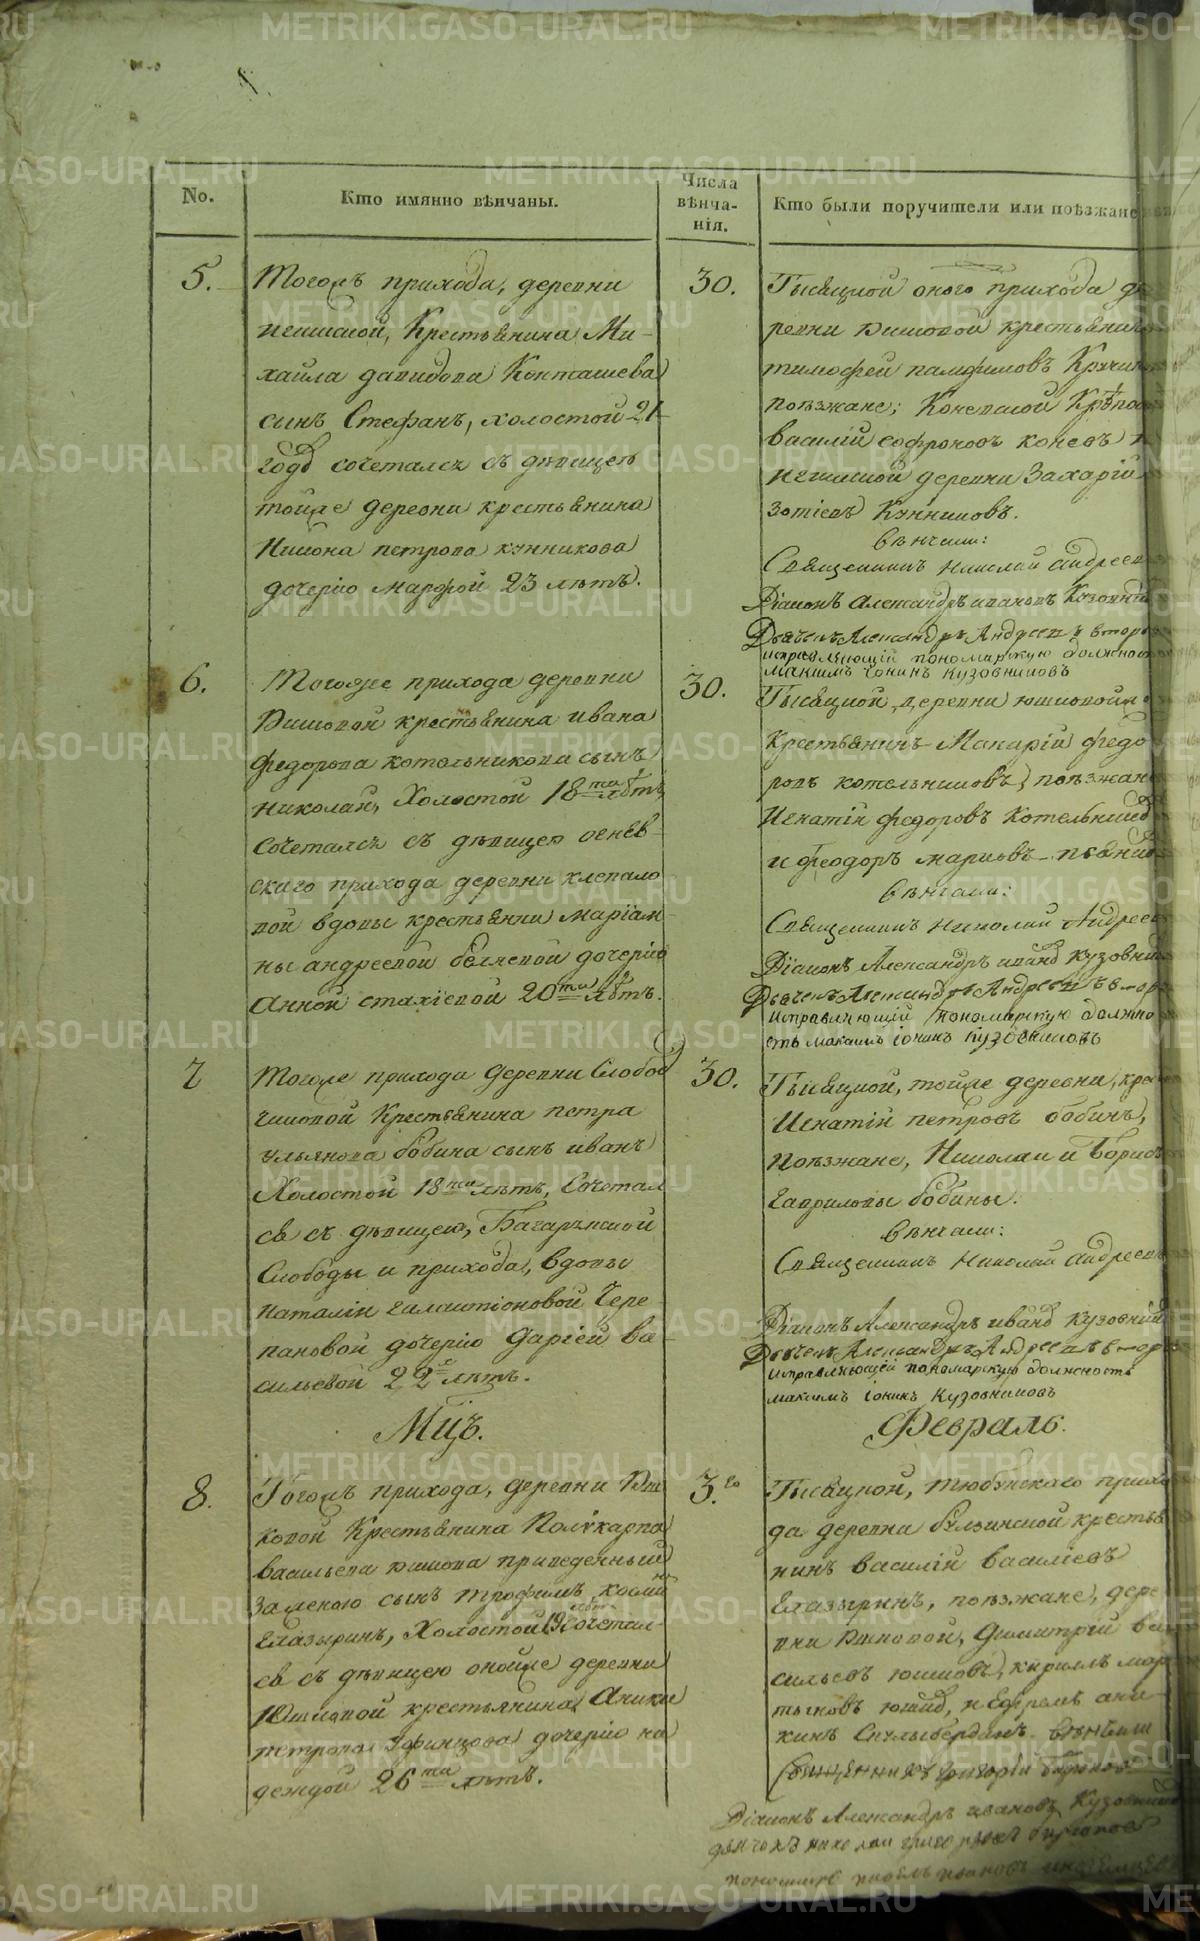 No.
Кто имянно вѣнчаны.
Числа
вѣнча-
нія.
Кто были поручители или поѣзжане
5.
Тогожъ прихода, деревни
Крестьянина Ми-
хаила давидова
сынъ Стефанъ, холостой 21
года сочетался съ дѣвицею
тойже деревни крестьянина
петрова кунникова
дочерію марфой 23 лѣтъ.
30.
Тысяцкой оного прихода де
ревни юшковой крестьянин
тимофей памфиловъ
поѣзжане;
василій софроновъ коневъ
деревни Захарій
Зотіевъ Кунниковъ.
вѣнчали:
Священникъ Николай андреев
Діаконъ александръ ивановъ
Дьячекъ Александръ Андреевъ второ
исправляющій пономарскую должност
максимъ іонинъ кузовниковъ
6.
Тогоже прихода деревни
Юшковой крестьянина ивана
федорова котельникова сынъ
николай, Холостой 18ти лѣтъ,
сочетался съ дѣвицею огнев-
скаго прихода деревни клепало
вой вдовы крестьянки маріам-
ны андреевой дочерію
Анной 20ти лѣтъ.
30.
Тысяцкой, деревни юшковой
Крестьянинъ Макарій федо
ровъ котельниковъ, поѣзжан
Игнатій федоровъ Котельник
и Феодоръ марковъ
вѣнчали:
Священникъ Николай Андреев
Діаконъ Александръ иванов кузовник
Дьячекъ Александръ Андреевъ втор
исправляющій пономарскую должно
сть максимъ іонинъ кузовниковъ
7
Тогоже прихода деревни Слобод
чиковой Крестьянина петра
ульянова бобина сынъ иванъ
Холостой 18ти лѣтъ, Сочетал
ся съ дѣвицею, Багаряцкой
Слободы и прихода, вдовы
наталіи галактіоновой Чере-
пановой дочерію Даріей ва-
сильевой 22 лѣтъ.
30.
Тысяцкой, тойже деревни, кре
Игнатій петровъ бобинъ,
Поѣзжане, Николай и Борисъ
Гавриловы бобины.
вѣнчали:
Священникъ Николай андреевъ
Діаконъ Александръ иванов кузовник
Дьячекъ Александръ Андреевъ втор
исправляющій пономарскую должность
максимъ іонинъ Кузовниковъ
Мцъ.
Февраль.
8.
Тогожъ прихода, деревни Юш
ковой Крестьянина Полукарпа
васильева юшкова приведенный
За женою сынъ трофимъ
Глазыринъ, Холостой 19 лѣтъ Сочетал-
ся съ дѣвицею онойже деревни
Юшковой крестьянина Аники
петрова дочерію на
деждой 26ти лѣтъ.
3.го
Тысяцкой, Тюбукскаго прихо
да деревни булзинской крестья
нинъ василій василіевъ
Глазыринъ, поѣзжане, дере
вни Юшковой, Димитрій ва
сильевъ юшковъ, кирилъ мар
тыновъ юшков, и Ефремъ ани
кинъ вѣнчали
Священникъ григорій
Діаконъ Александръ ивановъ Кузовник
дячокъ николай
пономарь ивановъ
METRIKI.GASO-URAL.RU